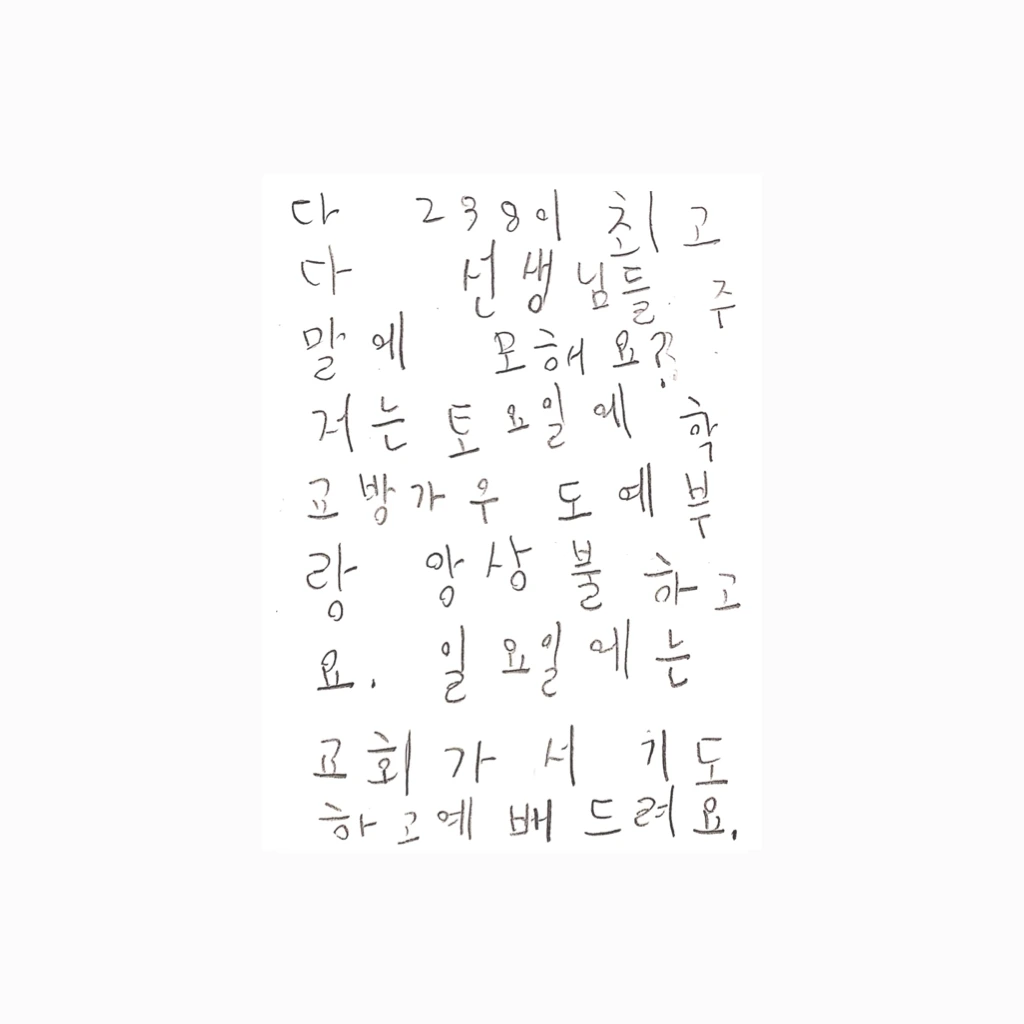 다 238이 최고
다 선생님들 주
말에 모해요?
저는 토요일에 학
교방가우 도예부
랑 앙상블 하고
요. 일요일에는
교회가서 기도
하고예배드려요.